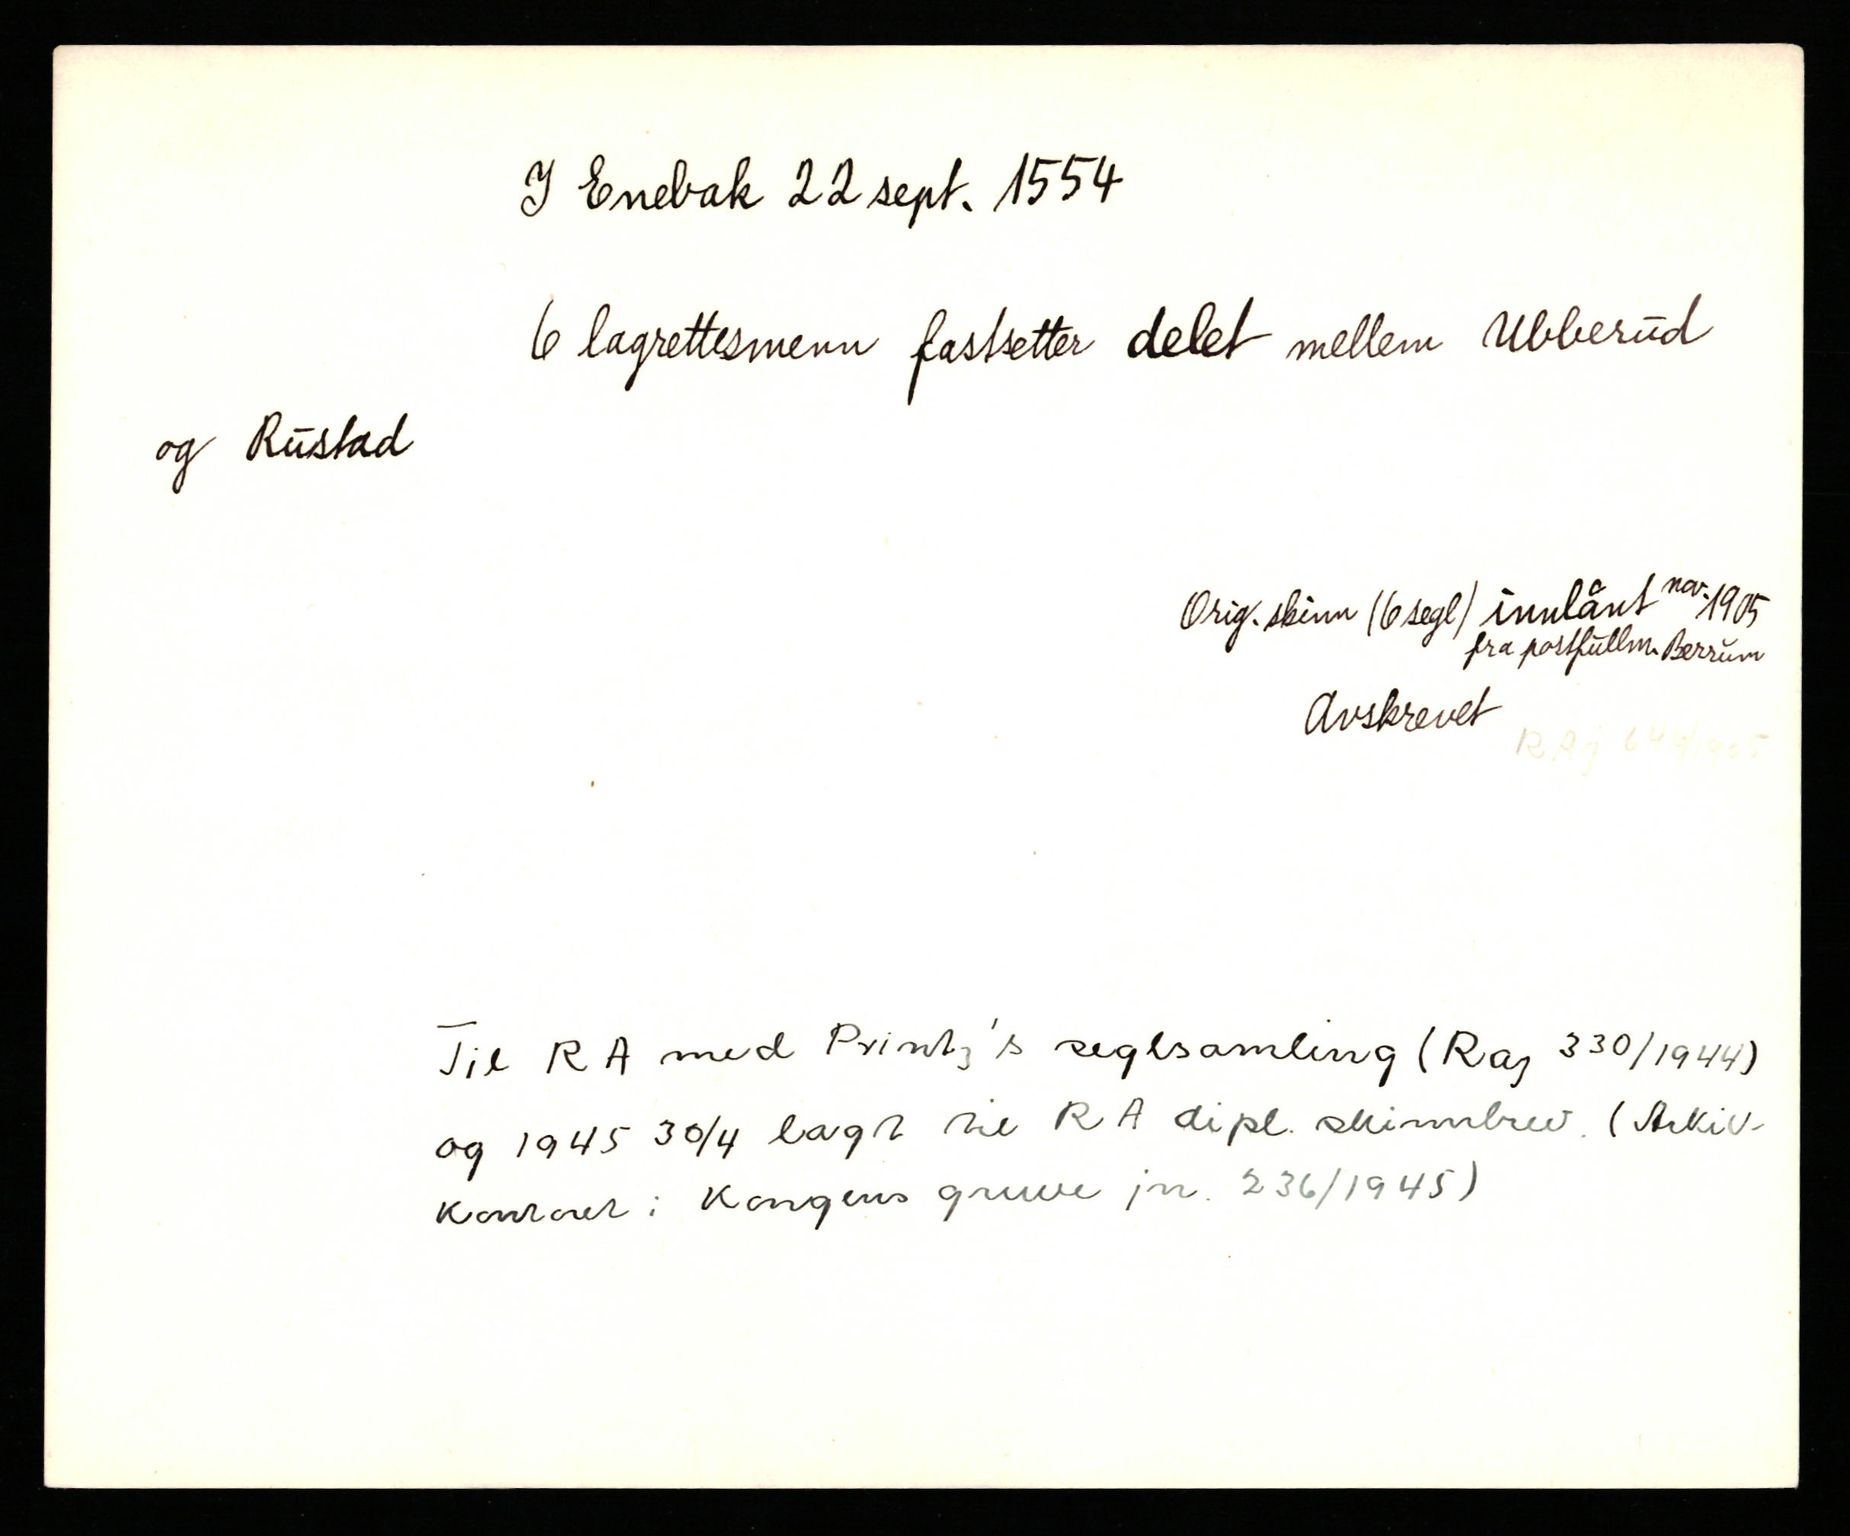 I Enebak 22 sept. 1554
6 lagrettesmenn fastsetter delet mellem Ubberud
og Rustad
Orig. skinn (6 segl) innlånt nov. 1905
fra postfullm. Berrum
Avskrevet
RAj 649/1905
Til RA med Printz's seglsamling (Raj 330/1944)
og 1945 30/4 lagt til RA dipl. skinnbrev. (Arkiv-
kontoret i Kongens gruve jn. 236/1945)